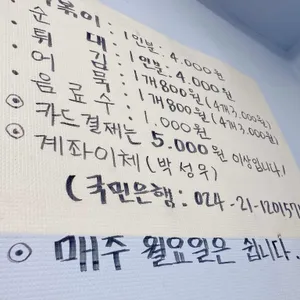 볶이 : 1인분: 4.000원
순 대 : 1인분. 4.000원
튀 김 : 1개800원(4개3.000원)
어 묵 : 1개800원(4개3.000원)
음료수 : 1.000원
◎ 카드결제는 5.000원 이상입니다
◎ 계좌이체(박성우)
(국민은행 : 024-21-
◎ 매주 월요일은 쉽니다.